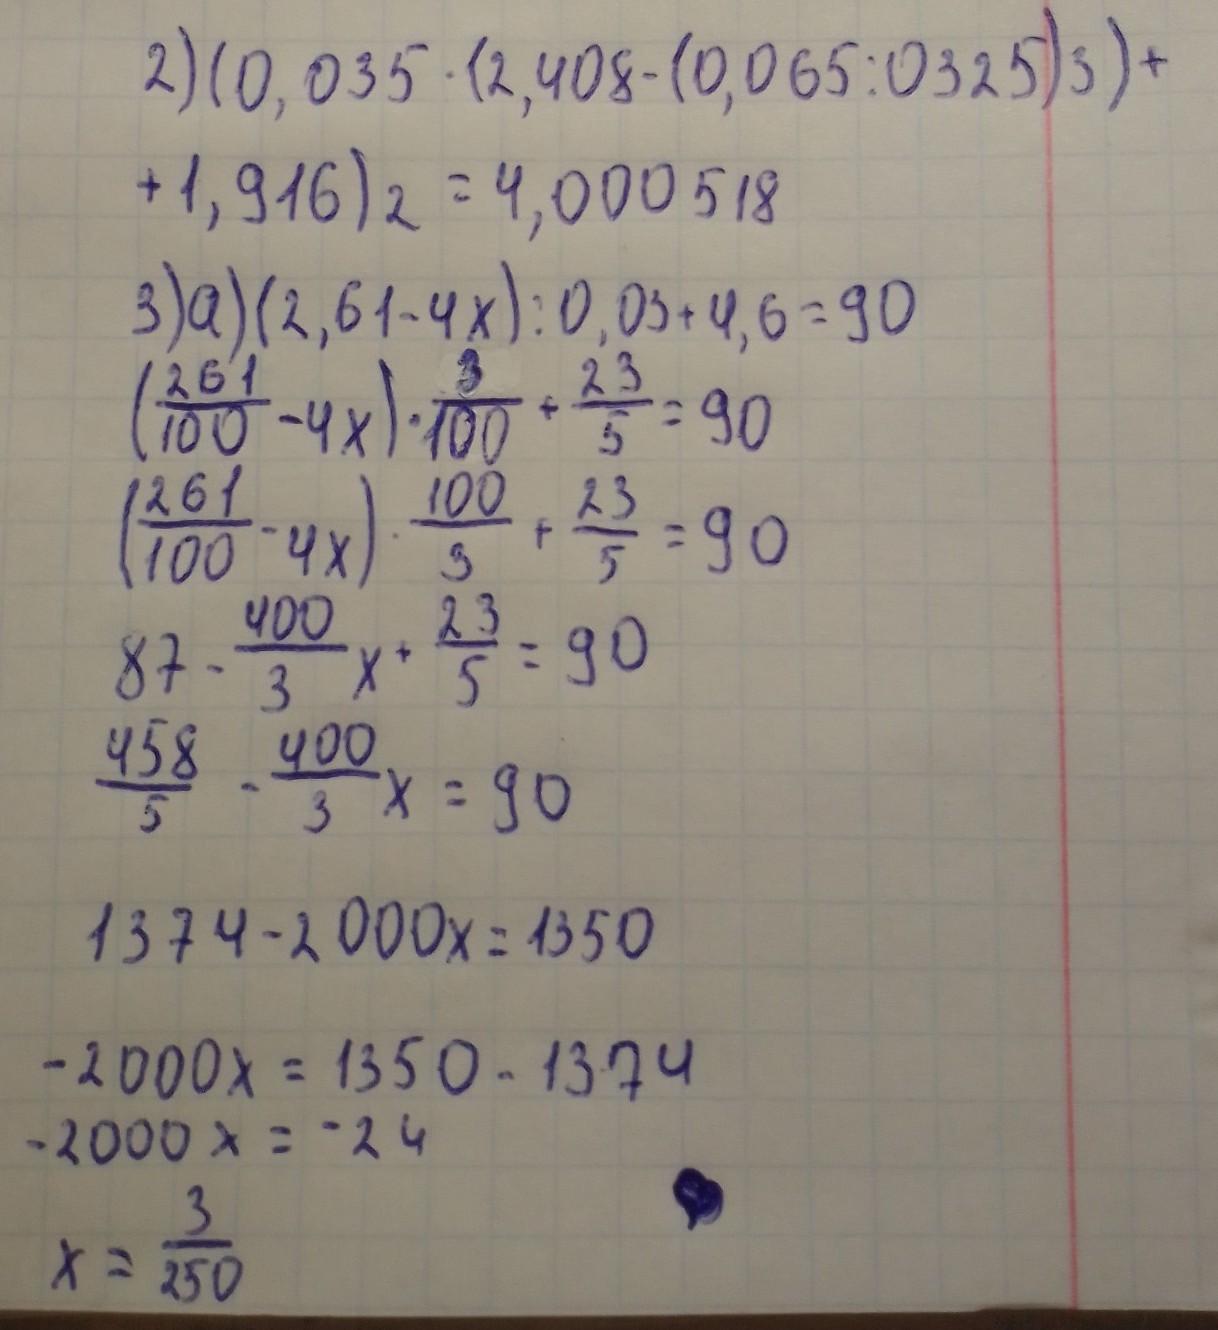 2)(0,035·(2,408-(0,065:0325)3)+
+1,916)2=4,000518
3)а)(2,61-4x):0,03+4,6=90
(261/100-4x)·3/100+23/5=90
(261/100-4x)·100/3+23/5=90
87-400/3x+23/5=90
458/5-400/3x=90
1374-2000x=1350
-2000x=1350-1374
-2000x=-24
x=3/250